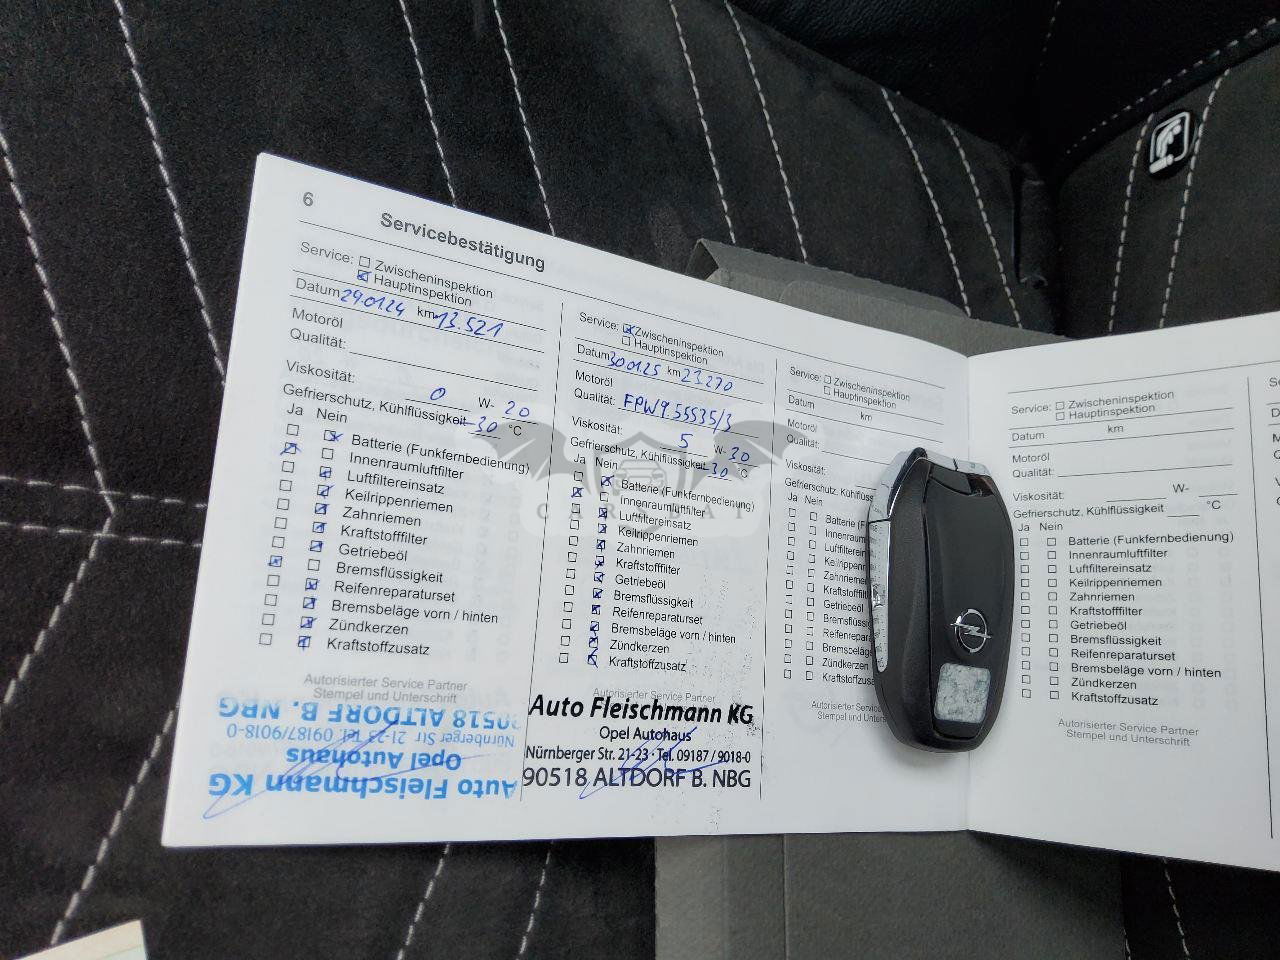 6
Servicebestätigung
Service: Zwischeninspektion
Hauptinspektion
Datum 29.01.24 km 13.521
Motoröl
Qualität:
Viskosität: 0 W- 20
Gefrierschutz, Kühlflüssigkeit -30 °C
Ja Nein
Batterie (Funkfernbedienung)
Innenraumluftfilter
Luftfiltereinsatz
Keilrippenriemen
Zahnriemen
Kraftstofffilter
Getriebeöl
Bremsflüssigkeit
Reifenreparaturset
Bremsbeläge vorn / hinten
Zündkerzen
Kraftstoffzusatz
Autorisierter Service Partner
Stempel und Unterschrift
Auto Fleischmann KG
Opel Autohaus
Nürnberger Str. 21-23 Tel. 09187/9018-0
90518 ALTDORF B. NBG
Service: Zwischeninspektion
Hauptinspektion
Datum 30.01.25 km 23270
Motoröl
Qualität: FPW9.55535/3
Viskosität: 5 W- 30
Gefrierschutz, Kühlflüssigkeit -30 °C
Ja Nein
Batterie (Funkfernbedienung)
Innenraumluftfilter
Luftfiltereinsatz
Keilrippenriemen
Zahnriemen
Kraftstofffilter
Getriebeöl
Bremsflüssigkeit
Reifenreparaturset
Bremsbeläge vorn / hinten
Zündkerzen
Kraftstoffzusatz
Autorisierter Service Partner
Auto Fleischmann KG
Opel Autohaus
Nürnberger Str. 21-23 · Tel. 09187 / 9018-0
90518 ALTDORF B. NBG
Service: Zwischeninspektion
Hauptinspektion
Datum km
Motoröl
Qualität:
Viskosität:
Gefrierschutz, Kühlflüss
Ja Nein
Batterie (F
Innenraum
Luftfilterein
Keilrippen
Zahnrieme
Kraftstofff
Getriebeöl
Bremsflüssi
Reifenrepar
Bremsbeläg
Zündkerzen
Kraftstoffzusa
Autorisierter Service
Stempel und Unters
Service: Zwischeninspektion
Hauptinspektion
Datum km
Motoröl
Qualität:
Viskosität: W-
Gefrierschutz, Kühlflüssigkeit °C
Ja Nein
Batterie (Funkfernbedienung)
Innenraumluftfilter
Luftfiltereinsatz
Keilrippenriemen
Zahnriemen
Kraftstofffilter
Getriebeöl
Bremsflüssigkeit
Reifenreparaturset
Bremsbeläge vorn / hinten
Zündkerzen
Kraftstoffzusatz
Autorisierter Service Partner
Stempel und Unterschrift